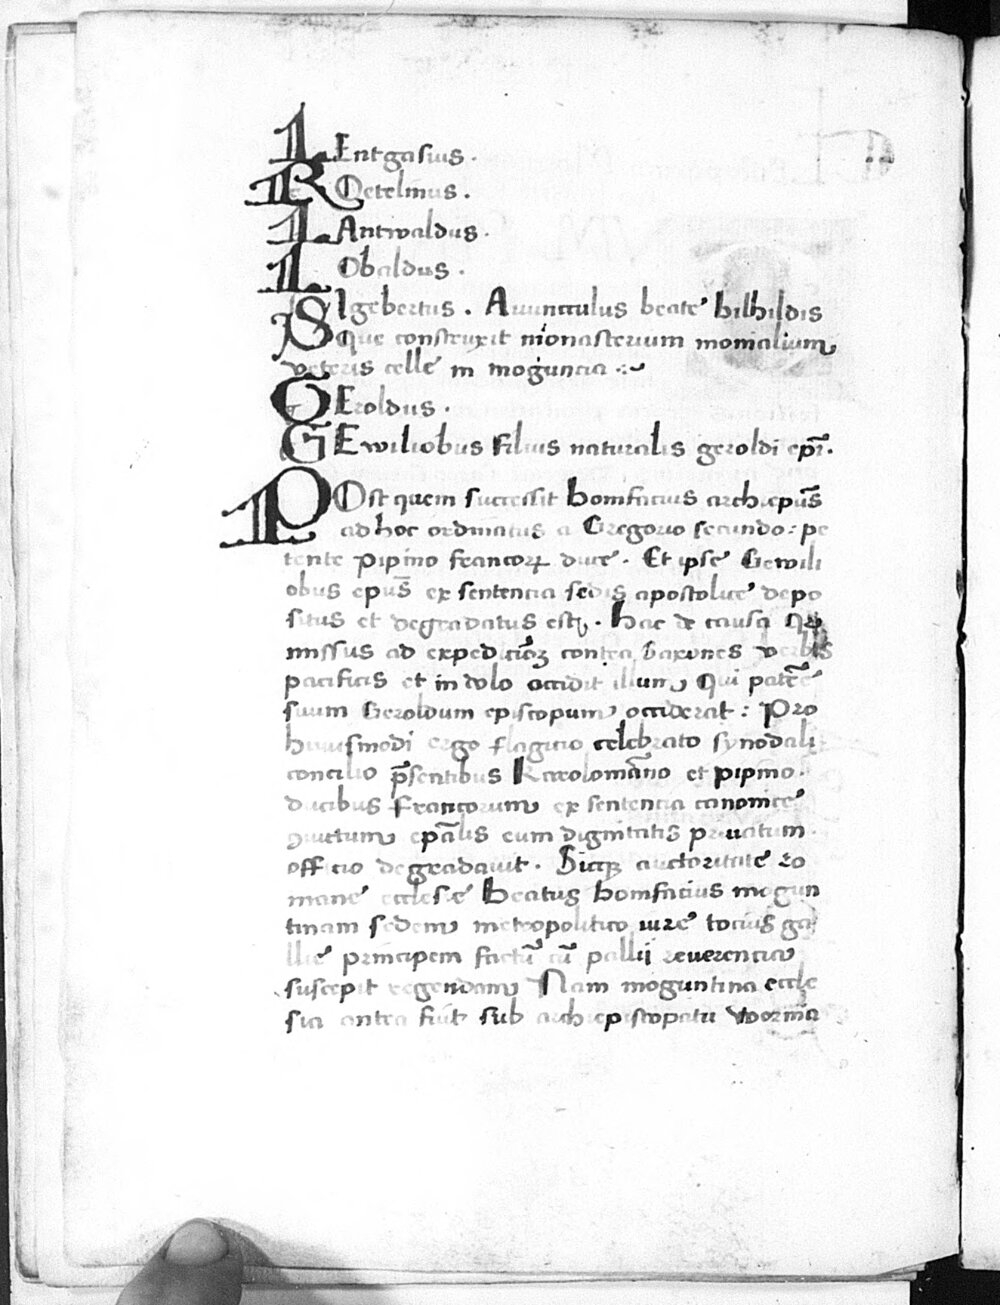 LEntgasius.
ROetelmus.
LAntwaldus.
LObaldus.
SIgebertus. Auunculus beate hilhildis
Que construxit monasterium monialium
veteris celle in moguncia
GEroldus.
GEwiliobus filius naturalis geroldi ep̄i.
POst quem successit bonifacius archiep̄us
ad hoc ordinatus a Gregorio secundo: pe
tente pipino francoꝝ duce. Et ipse Gewili
obus ep̄us ex sentencia sedis apostolice depo
situs et degradatus est. Hac de causa
missus ad expedicionē contra saxones verbis
pacificis et in dolo occidit illum Qui patrē
suum Geroldum episcopum occiderat: Pro
huiusmodi ergo flagicio celebrato synodali
concilio p̄sentibus Karolomanno et pipino.
ducibus francorum ex sentencia canonice
ꝯuictum ep̄alis eum dignitatis priuatum.
officio degradauit. Sicqꝫ auctoritate ro
mane ecclesie Beatus bonifacius mogun
tinam sedem metropolitico iure tocius ga
llie principem factū cū pallii reuerencia
suscepit regendam Nam moguntina eccle
sia antea fuit sub archiepiscopatu worma